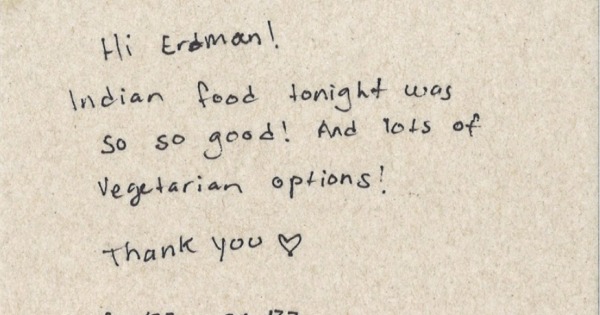 Hi Erdman!
Indian food tonight was
so so good! And lots of
vegetarian options!
Thank you ♡